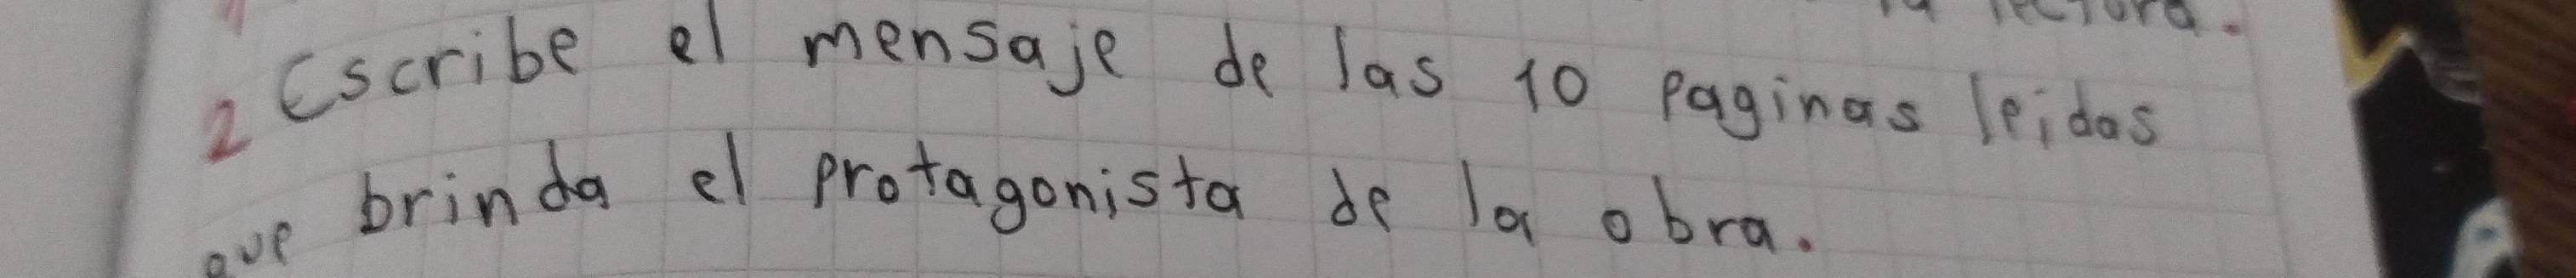 lectura.
2 Escribe el mensaje de las 10 paginas leidas
que brinda el protagonista de la obra.